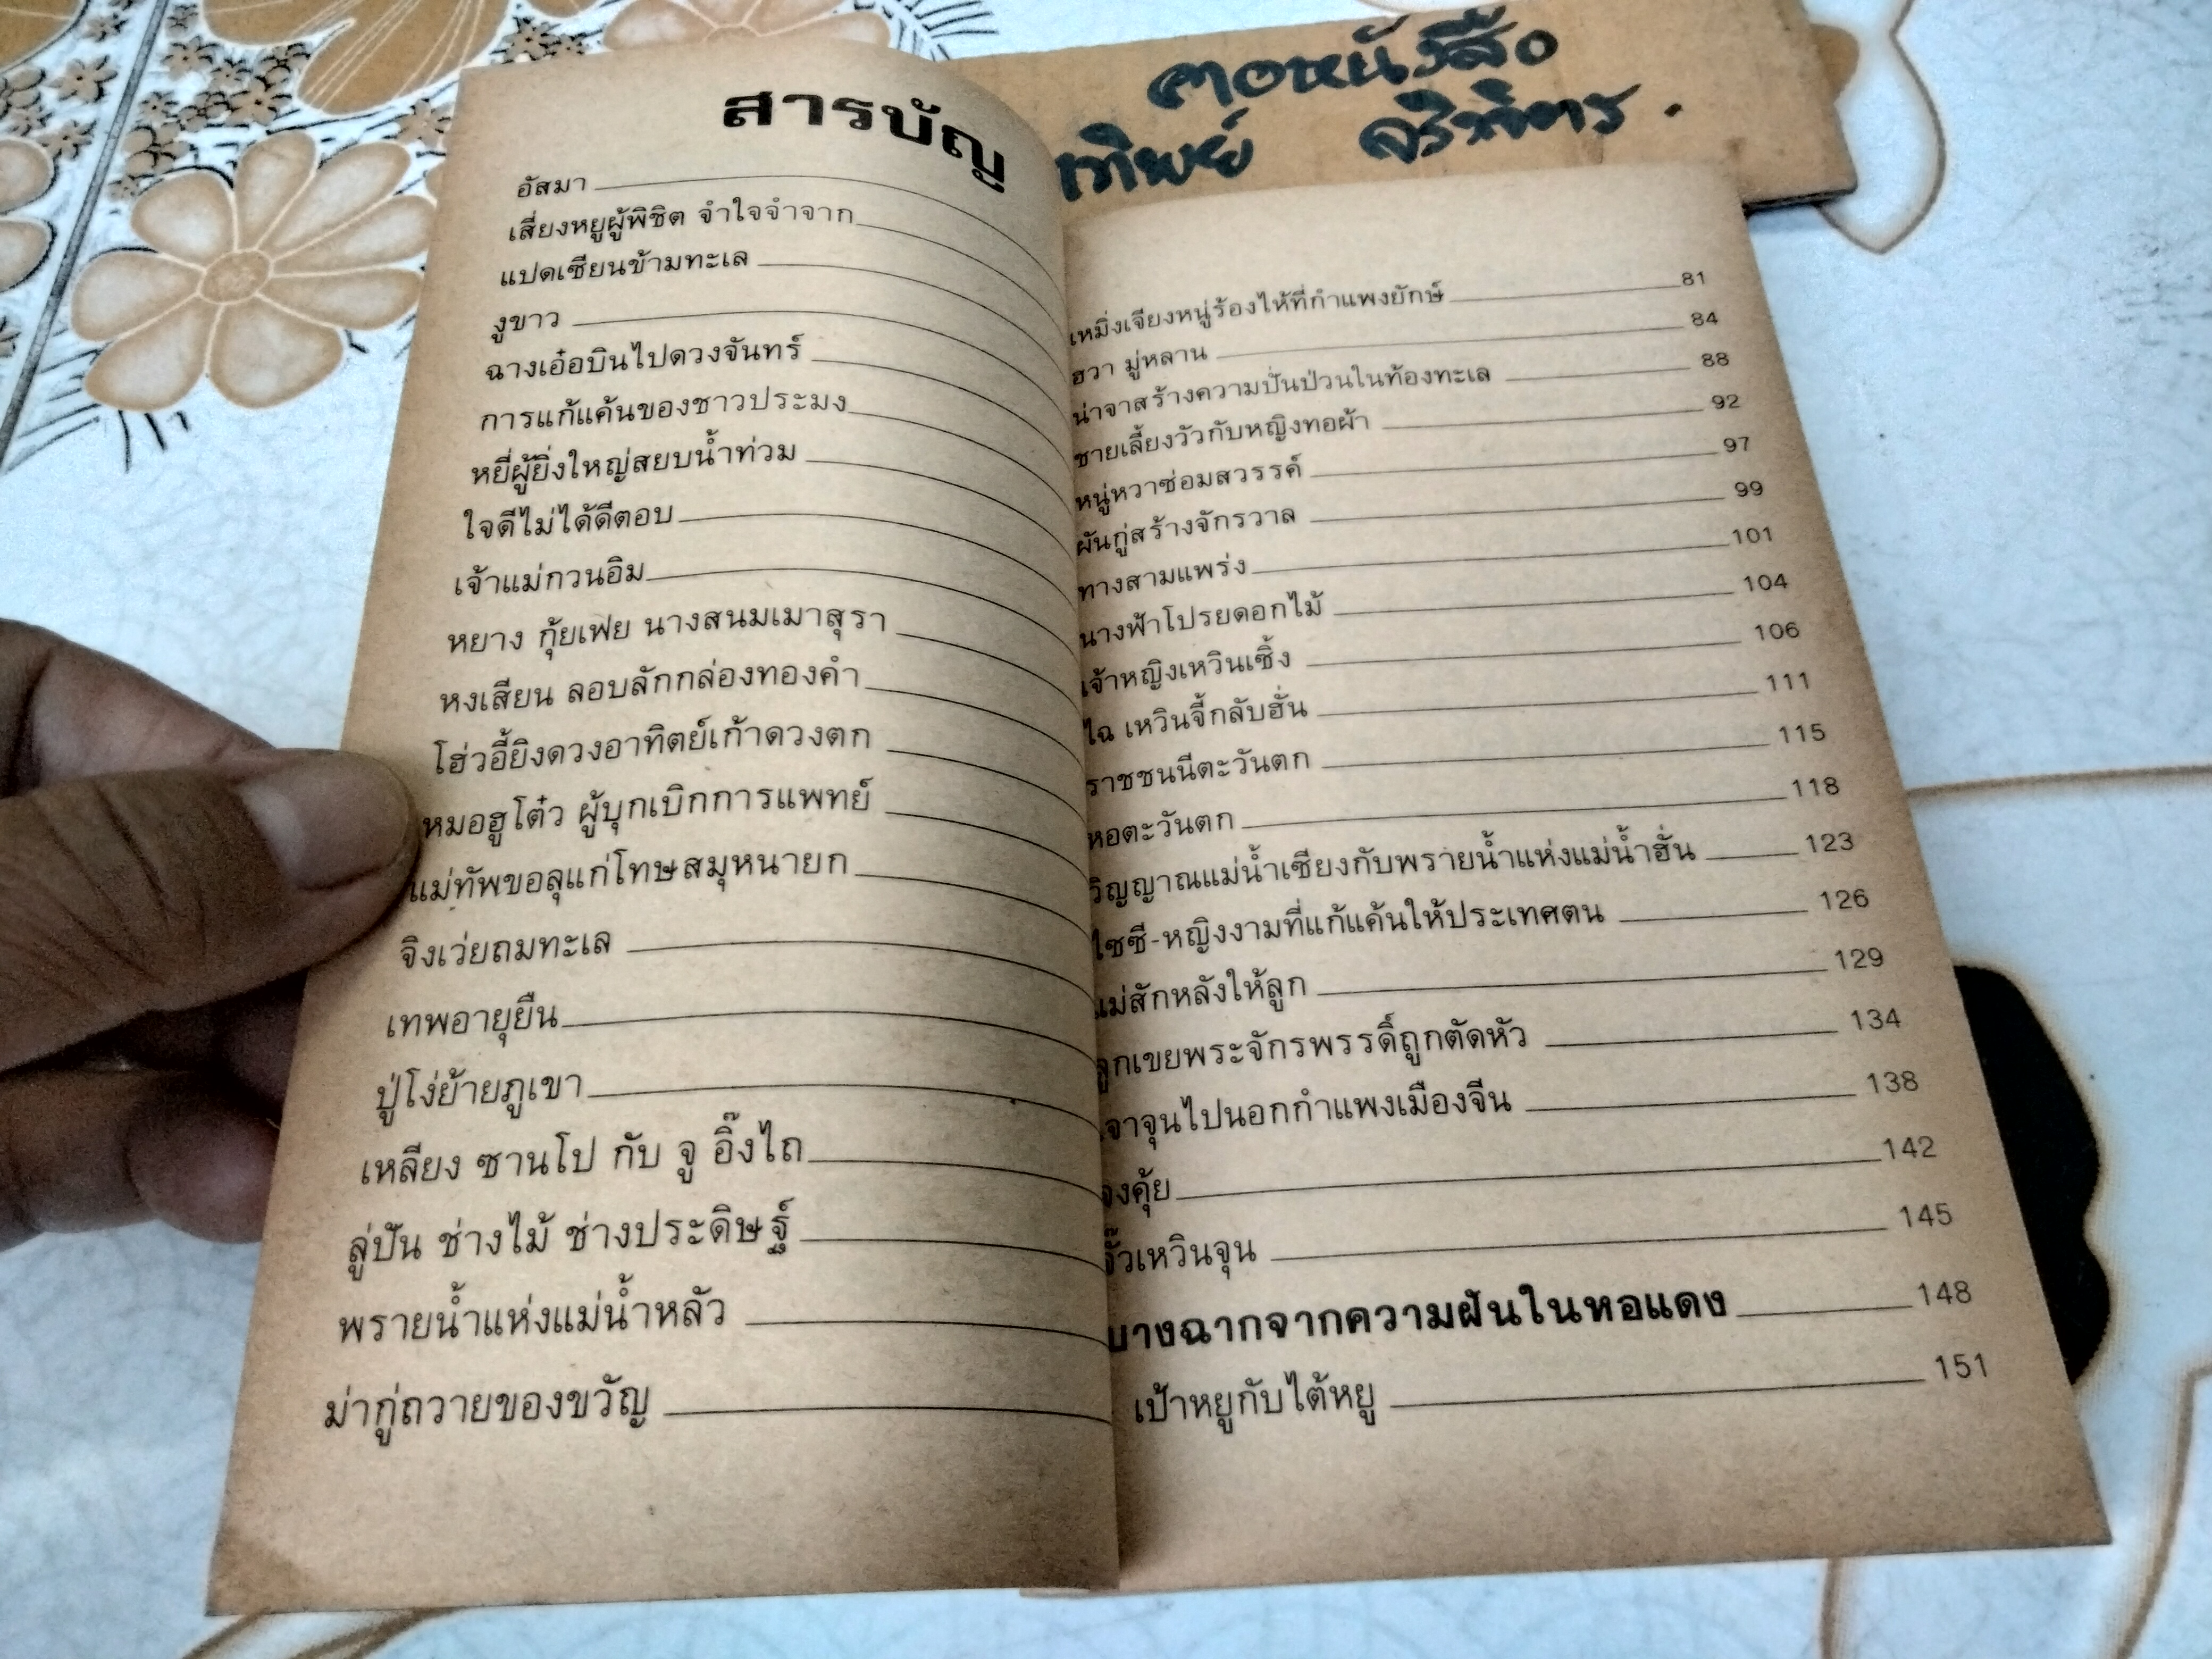 คอหนังสือ
เทิพย์
สารบัญ
อัสมา
เสี่ยงหยูผู้พิชิต จำใจจำจาก
แปดเซียนข้ามทะเล
งูขาว
ฉางเอ๋อบินไปดวงจันทร์
การแก้แค้นของชาวประมง
หยี่ผู้ยิ่งใหญ่สยบน้ำท่วม
ใจดีไม่ได้ดีตอบ
เจ้าแม่กวนอิม
หยาง กุ้ยเฟย นางสนมเมาสุรา
หงเสียน ลอบลักกล่องทองคำ
โฮ่วอี้ยิงดวงอาทิตย์เก้าดวงตก
หมอฮูโต๋ว ผู้บุกเบิกการแพทย์
แม่ทัพขอลุแก่โทษสมุหนายก
จิงเว่ยถมทะเล
เทพอายุยืน
ปู่โง่ย้ายภูเขา
เหลียง ซานโป กับ จู อิ๊งไถ
ลู่ปัน ช่างไม้ ช่างประดิษฐ์
พรายน้ำแห่งแม่น้ำหลัว
ม่ากู่ถวายของขวัญ
เหมิ่งเจียงหนู่ร้องไห้ที่กำแพงยักษ์ 81
ฮวา มู่หลาน 84
น่าจาสร้างความปั่นป่วนในท้องทะเล 88
ชายเลี้ยงวัวกับหญิงทอผ้า 92
หนู่หวาซ่อมสวรรค์ 97
ผันกู่สร้างจักรวาล 99
ทางสามแพร่ง 101
นางฟ้าโปรยดอกไม้ 104
เจ้าหญิงเหวินเซิ้ง 106
ไฉ เหวินจี้กลับฮั่น 111
ราชชนนีตะวันตก 115
หอตะวันตก 118
วิญญาณแม่น้ำเซียงกับพรายน้ำแห่งแม่น้ำฮั่น 123
ไซซี-หญิงงามที่แก้แค้นให้ประเทศตน 126
แม่สักหลังให้ลูก 129
ลูกเขยพระจักรพรรดิ์ถูกตัดหัว 134
จาจุนไปนอกกำแพงเมืองจีน 138
จงคุ้ย 142
จั๊วเหวินจุน 145
บางฉากจากความฝันในหอแดง 148
เป้าหยูกับไต้หยู 151